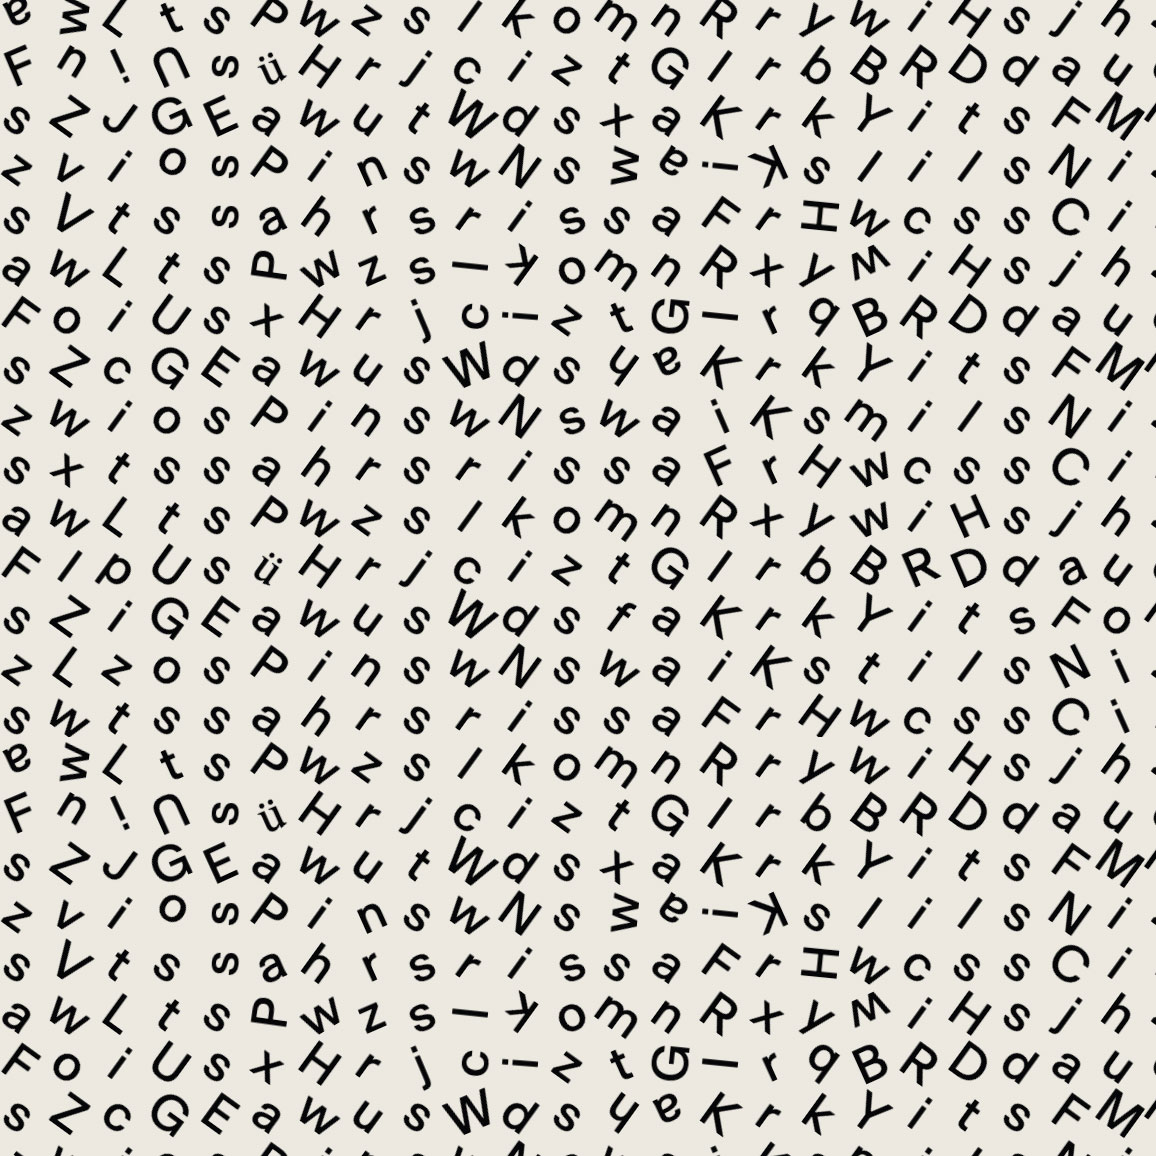 a w L t s P w z s l k o m n R r y w i H s j h
F n ! U s ü H r j c i z t G l r b B R D d a u
s Z J G E a w u t W d s x a K r k Y i t s F M
z v i o s P i n s w N s w a i K s l i l s N i
s V t s s a h r s r i s s a F r H w c s s C i
a w L t s P w z s l k o m n R x y w i H s j h
F o i U s x H r j c i z t G l r 9 B R D d a u
s Z c G E a w u s W d s y a K r k Y i t s F M
z w i o s P i n s w N s w a i K s m i l s N i
s x t s s a h r s r i s s a F r H w c s s C i
a w L t s P w z s l k o m n R x y w i H s j h
F l p U s ü H r j c i z t G l r b B R D d a u
s Z i G E a w u s W d s f a K r k Y i t s F o
z L z o s P i n s w N s w a i K s t i l s N i
s w t s s a h r s r i s s a F r H w c s s C i
a w L t s P w z s l k o m n R r y w i H s j h
F n ! U s ü H r j c i z t G l r b B R D d a u
s Z J G E a w u t W d s x a K r k Y i t s F M
z v i o s P i n s w N s w a i K s l i l s N i
s V t s s a h r s r i s s a F r H w c s s C i
a w L t s P w z s l k o m n R x y w i H s j h
F o i U s x H r j c i z t G l r 9 B R D d a u
s Z c G E a w u s W d s y a K r k Y i t s F M